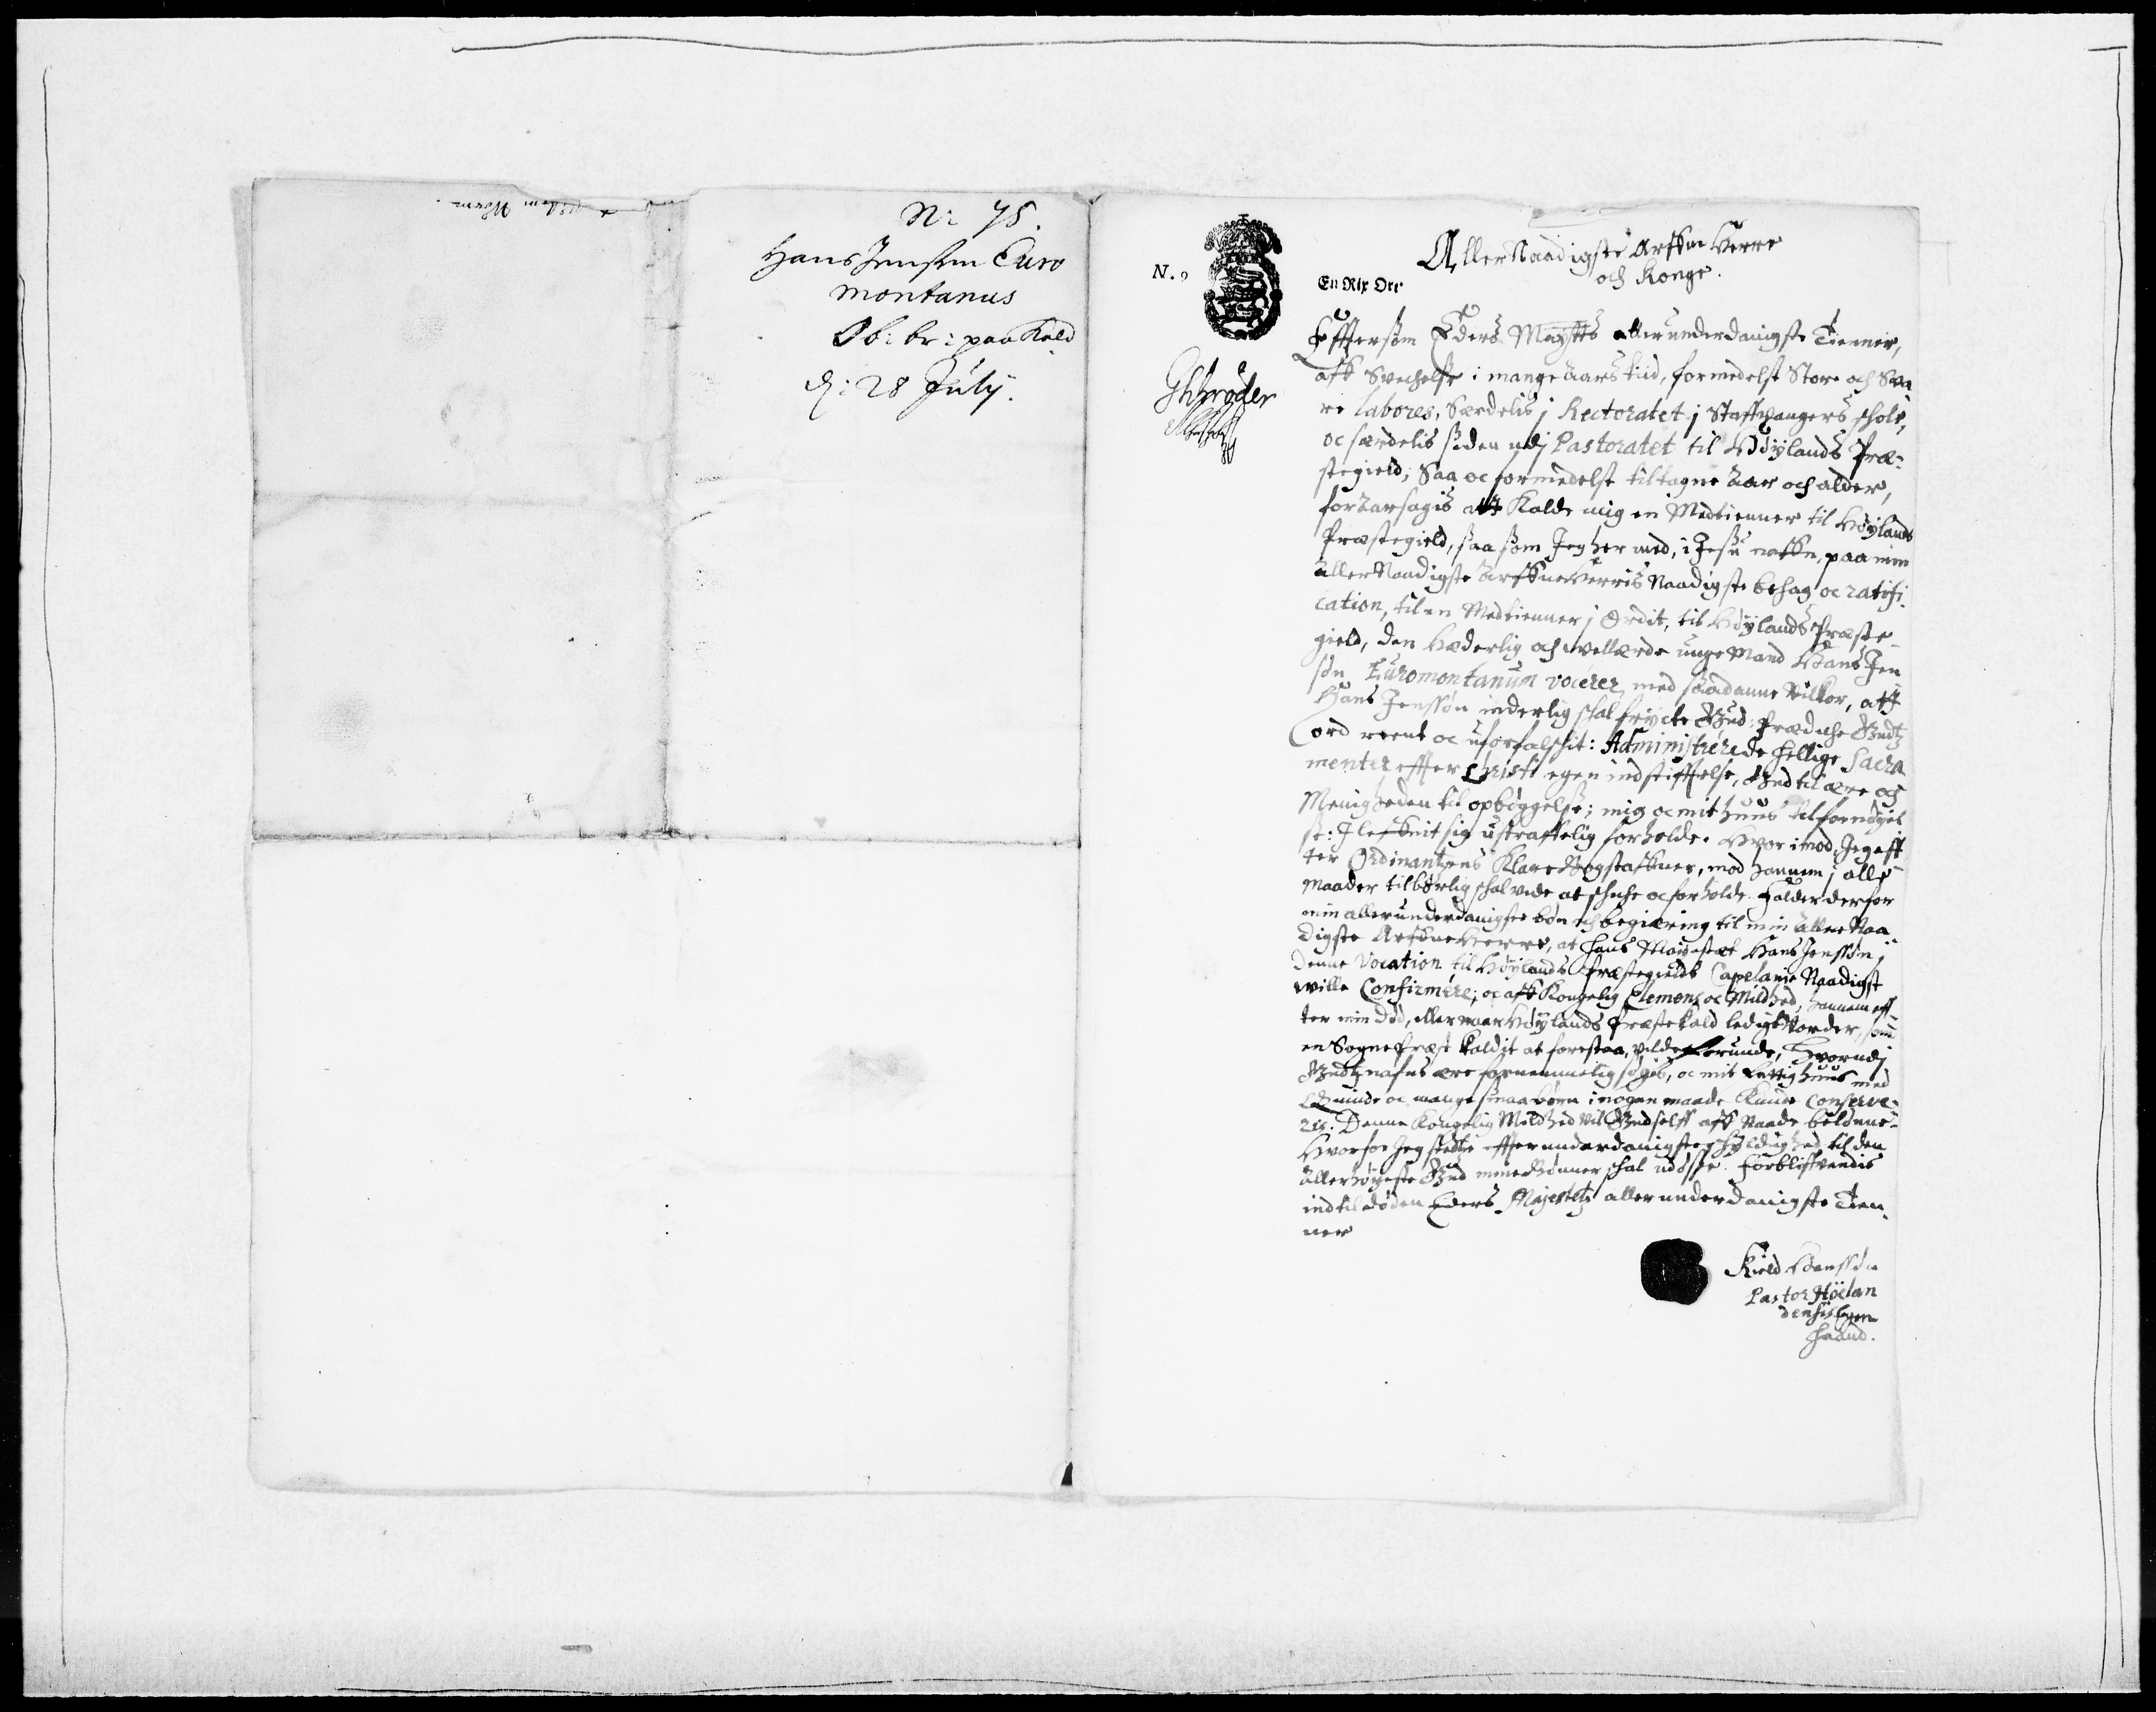 N: 75.
Hans Jensen Euro
montanus
Ob: br: paa Kald
d: 28 July.
N.o
En Rix Ort
AllerNaadigste Arffue Herre
och Konge.
Effttersom Eders Maystts allerunderdanigste Tienner,
aff Svechelse i mange aars tiid, formedelst Store och Sva¬
re labores, Særdelis j Rectoratet j Staffvangers schole,
oc særdelis siden udj Pastoratet til Høylands Præ¬
stegield; Saa oc formedelst tiltagne aar och alder,
foraarsagis att Kalde mig en Medtienner til Høylands
Præstegield, saasom Jeg her med, i Jesu naffn, paa min
allerNaadigste ArffueHerris Naadigste behag oc ratifi¬
cation, til en Medtienner j Ordit, til Høylands Præste¬
gield, den Hæderlig och wellærde unge Mand Hans Jen
søn Euromontanum vocerer, med saadanne Vilkor, att
Hans Jenssøn inderlig schal frycte Gud: Prædiche Gudtz
ord reent oc uforfalschit: Administrere de hellige Sacra
menter effter Christi egen indstifftelse, Gud til ære och
Menigheden til opbyggelse; mig oc mit huus til fornøyel
se: J leffnit sig ustraffelig forholde. Hvor imod, Jeg eff
ter Ordinantzens Klare Bogstaffuer, mod hannem j alle
maader tilbørlig schal vide at schiche oc forholde. Falder derfor
min allerunderdanigste bøn och begiæring til min allerNaa
digste ArffueHerre, at Hans Mayestæt Hans Jenssøn j
denne Vocation til Høylands Præstegields Capelanie Naadigst
wille Confirmere; oc aff Kongelig Clemens oc Mildhed, hannem eff
ter min død, eller naar Høylands Præstekald ledigt vorder, som
en SognePræst kaldit at forestaa, vilde forunde, Hvorudj
Gudtz nafns ære fornemmelig søgis, oc mit fattig huus med
Quinde oc mange smaa børn i nogen maade kunde conserve¬
ris: Denne Kongelig Mildhed vil Gud selff aff Naade belønne
Hvorfor Jeg stedtze effter underdanigste schyldighed til den
allerhøyeste Gud mine Bønner schal udøse. Forbliffvendis
indtil døden Eders Majestetz allerunderdanigste Tien¬
ner
Kield
Pastor Høilan
densis Egen
haand.